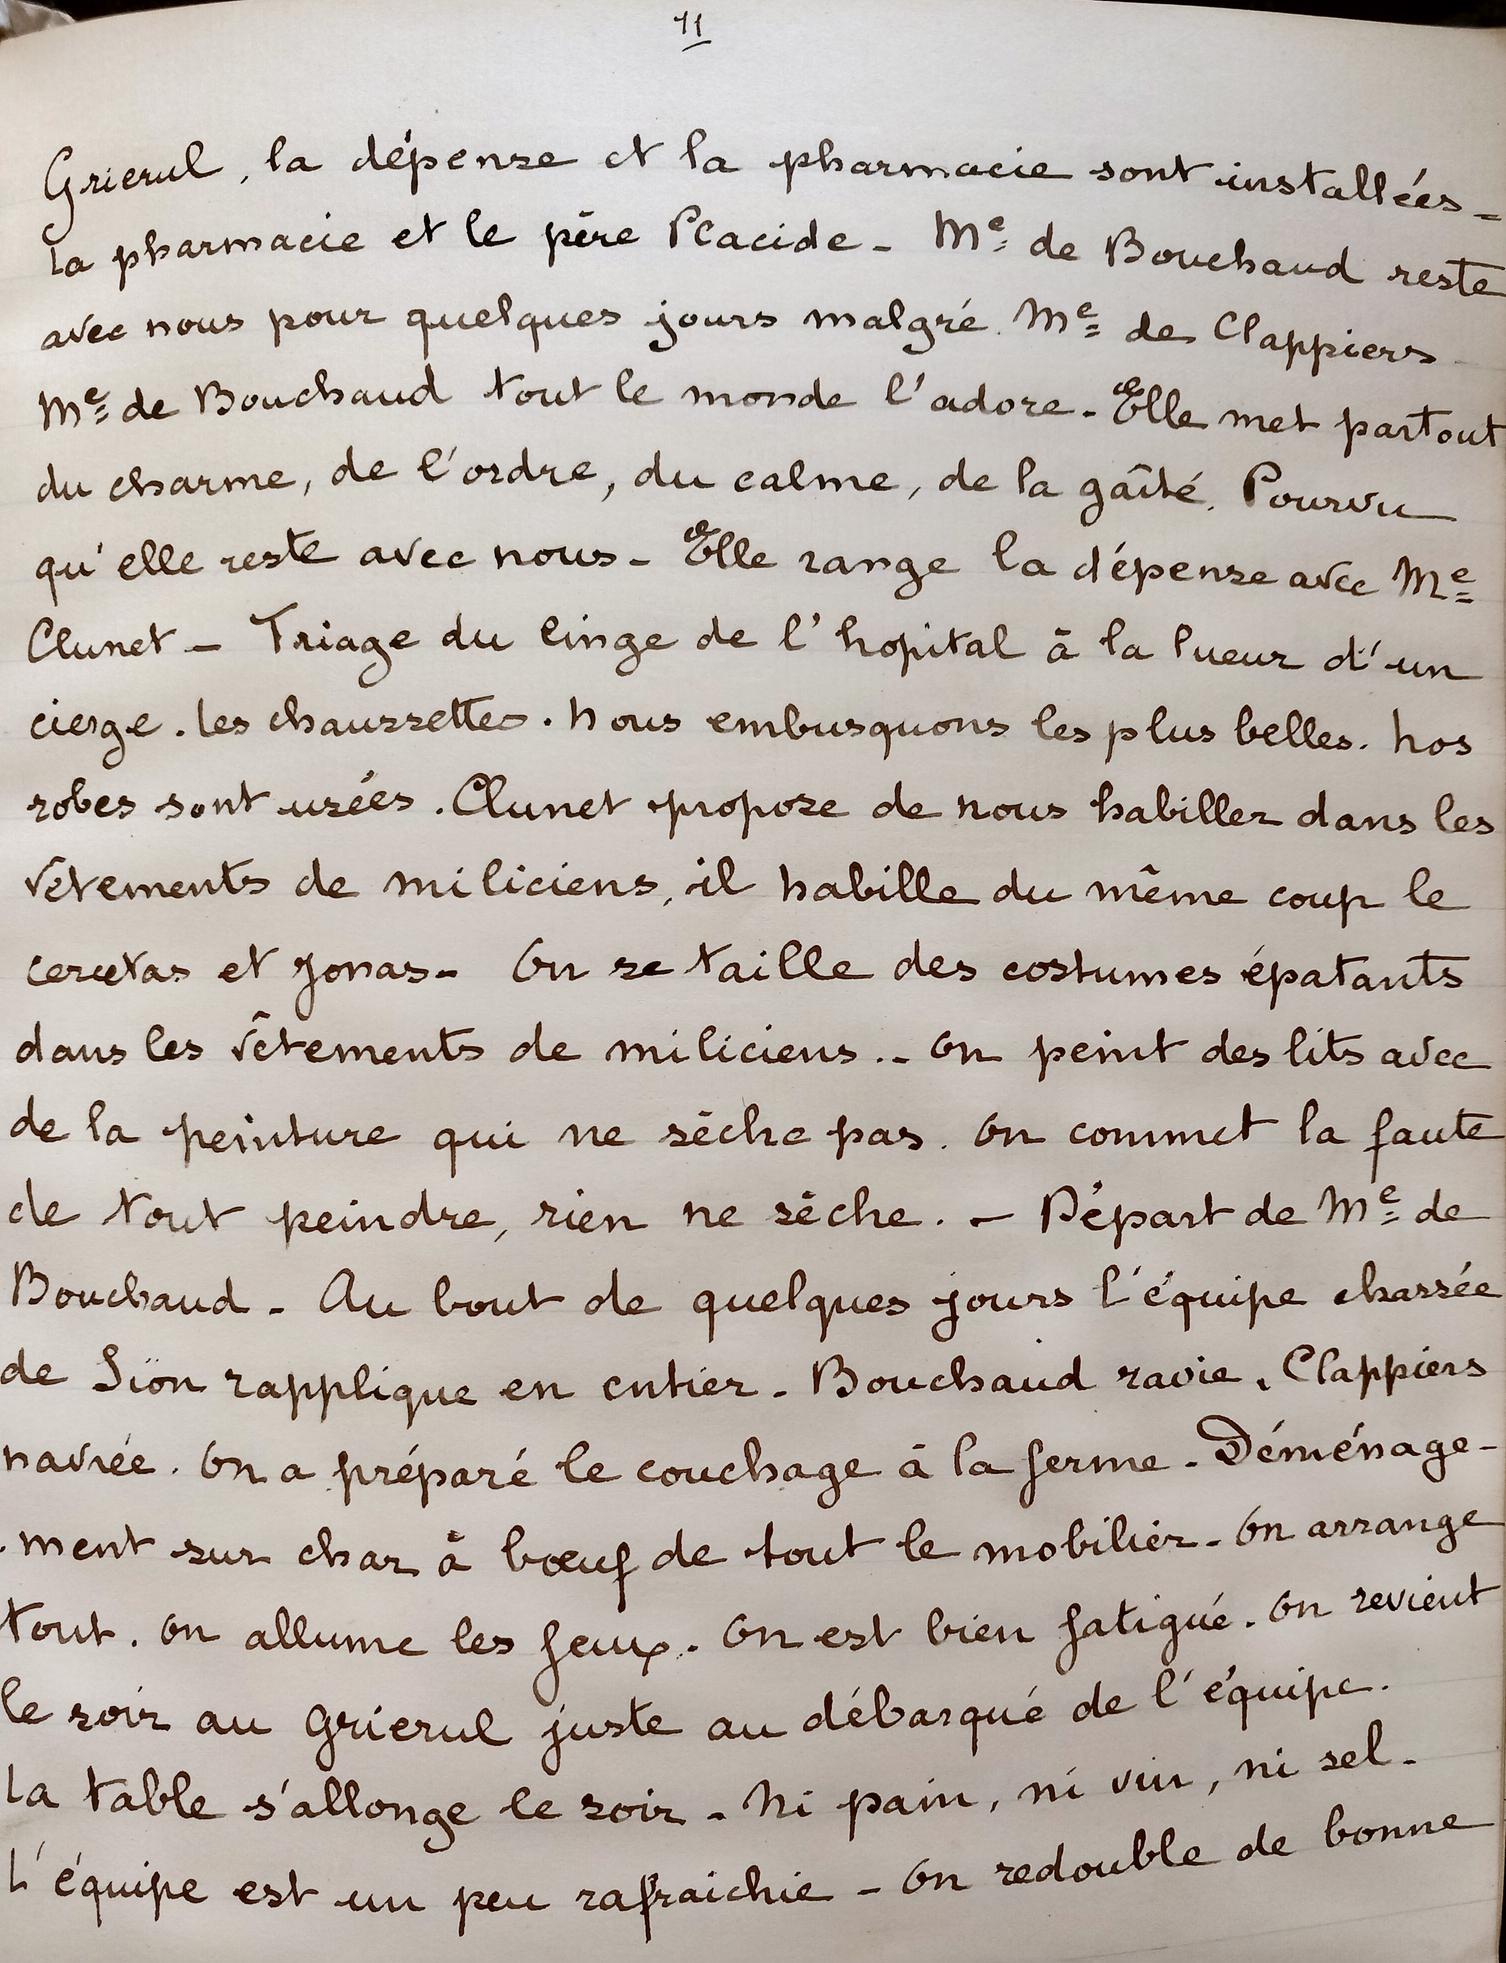 11
Grierul, la dépense et la pharmacie sont installées -
La pharmacie et le père Placide - Me de Bouchaud reste
avec nous pour quelques jours malgré Me de Clappiers
Me de Bouchaud tout le monde l'adore - Elle met partout
du charme, de l'ordre, du calme, de la gaîté. Pourvu
qu'elle reste avec nous - Elle range la dépense avec Me
Clunet - Triage du linge de l'hopital à la lueur d'un
cierge. Les chaussettes. Nous embusquons les plus belles. Nos
robes sont usées. Clunet propose de nous habiller dans les
vêtements de miliciens, il habille du même coup le
cercetas et Jonas - On se taille des costumes épatants
dans les vêtements de miliciens .. On peint des lits avec
de la peinture qui ne sèche pas. On commet la faute
de tout peindre, rien ne sèche. - Départ de Me de
Bouchaud - Au bout de quelques jours l'équipe chassée
de Sïon rapplique en entier - Bouchaud ravie, Clappiers
navrée. On a préparé le couchage à la ferme - Déménage-
-ment sur char à bœuf de tout le mobilier - On arrange
tout. On allume les feux. On est bien fatigué. On revient
le soir au Grierul juste au débarqué de l'équipe.
La table s'allonge le soir - Ni pain, ni vin, ni sel -
L'équipe est un peu rafraichie - On redouble de bonne